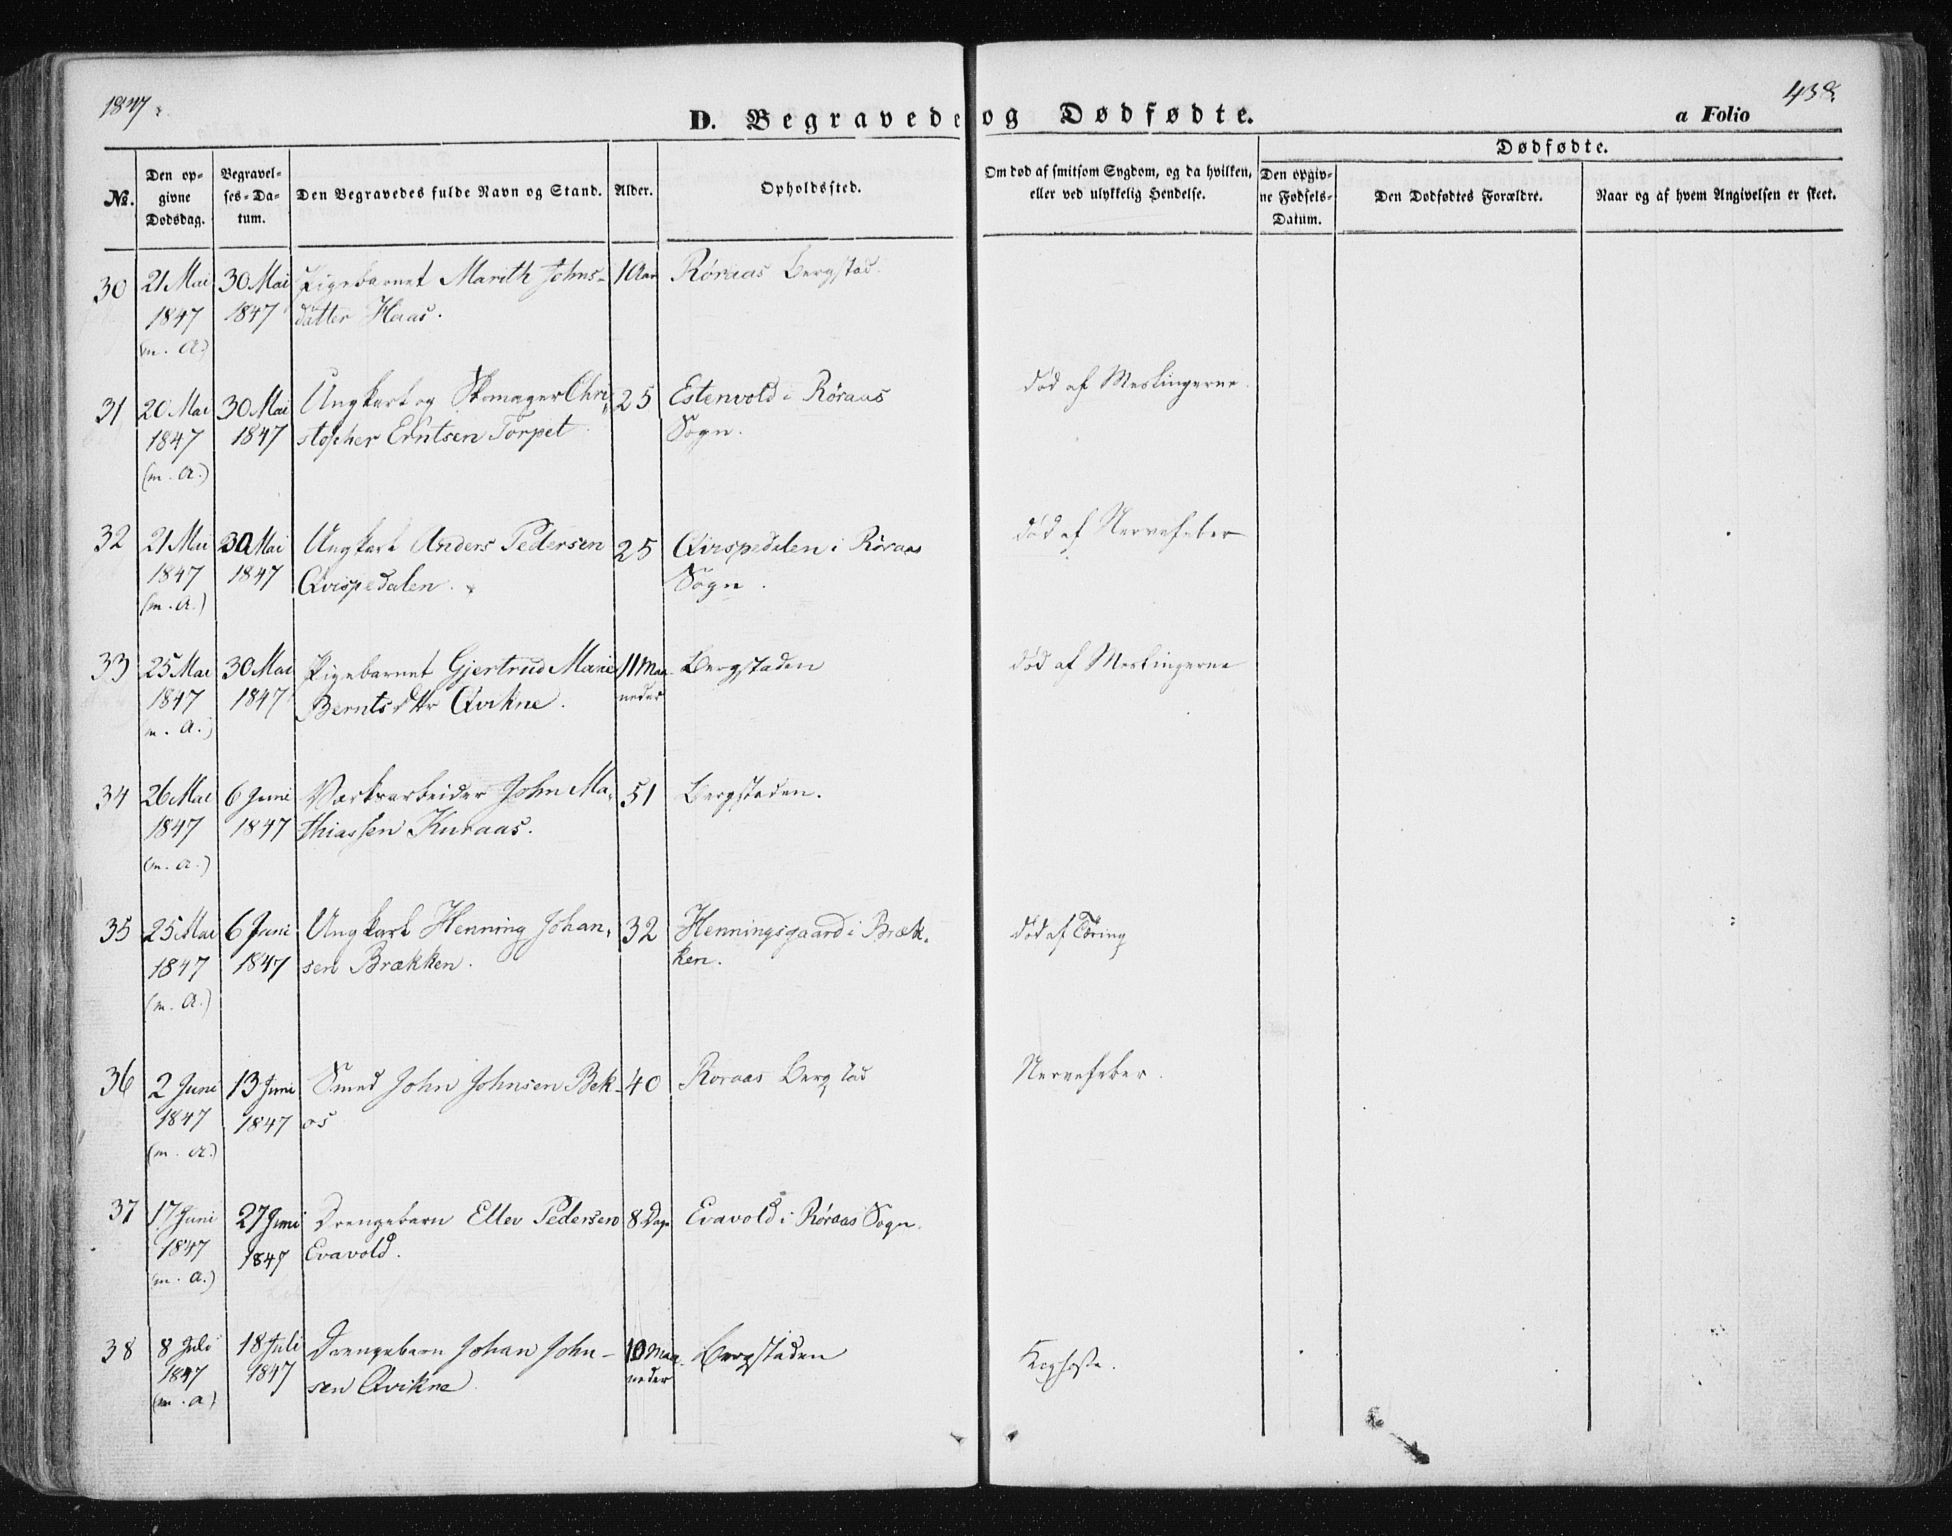 1847.
D. Begravede og Dødfødte.
a Folio
438.
No.
Den opgivne Dødsdag.
Begravelses-Datum.
Den Begravedes fulde Navn og Stand.
Alder.
Opholdssted.
Om død af smitsom Sygdom, og da hvilken, eller ved ulykkelig Hendelse.
Dødfødte.
Den opgivne Fødsels-Datum.
Den Dødfødtes Forældre.
Naar og af hvem Angivelsen er skeet.
30 21 Mai 30 Mai Pigebarnet Marith Johns- 1 Aar Røraas Bergstad.
1847 1847 datter Haas.
(m. A.)
31 20 Mai 30 Mai Ungkarl og Skomager Chri- 25 Estenvold i Røraas død af Meslingerne.
1847 1847 stopher Erntsen Torpet Sogn.
(m. A.)
32 21 Mai 30 Mai Ungkarl Anders Pedersen 25 Qvispedalen i Røraas død af Nervefeber
1847 1847 Qvispedalen. Sogn.
(m. A.)
33 25 Mai 30 Mai Pigebarnet Gjertrud Marie 11 Maa- Bergstaden død af Meslingerne
1847 1847 Berntsdttr Qvikne. neder
(m. A.)
34 26 Mai 6 Juni Værksarbeider John Ma- 51 Bergstaden.
1847 1847 thiassen Kuraas.
(m. A.)
35 25 Mai 6 Juni Ungkarl Henning Johan- 32 Henningsgaard i Bræk- død af Tæring
1847 1847 sen Brækken. ken.
(m. A.)
36 2 Juni 13 Juni Smed John Johnsen Bek- 40 Røraas Bergstad Nervefeber.
1847 1847 os
(m. A.)
37 17 Juni 27 Juni Drengebarn Ellev Pedersen 8 Dage Evavold i Røraas Sogn.
1847 1847 Evavold.
(m. A.)
38 8 Juli 18 Juli Drengebarn Johan John- 10 Maa- Bergstaden Kighoste.
1847 1847 sen Qvikne neder
(m. A)